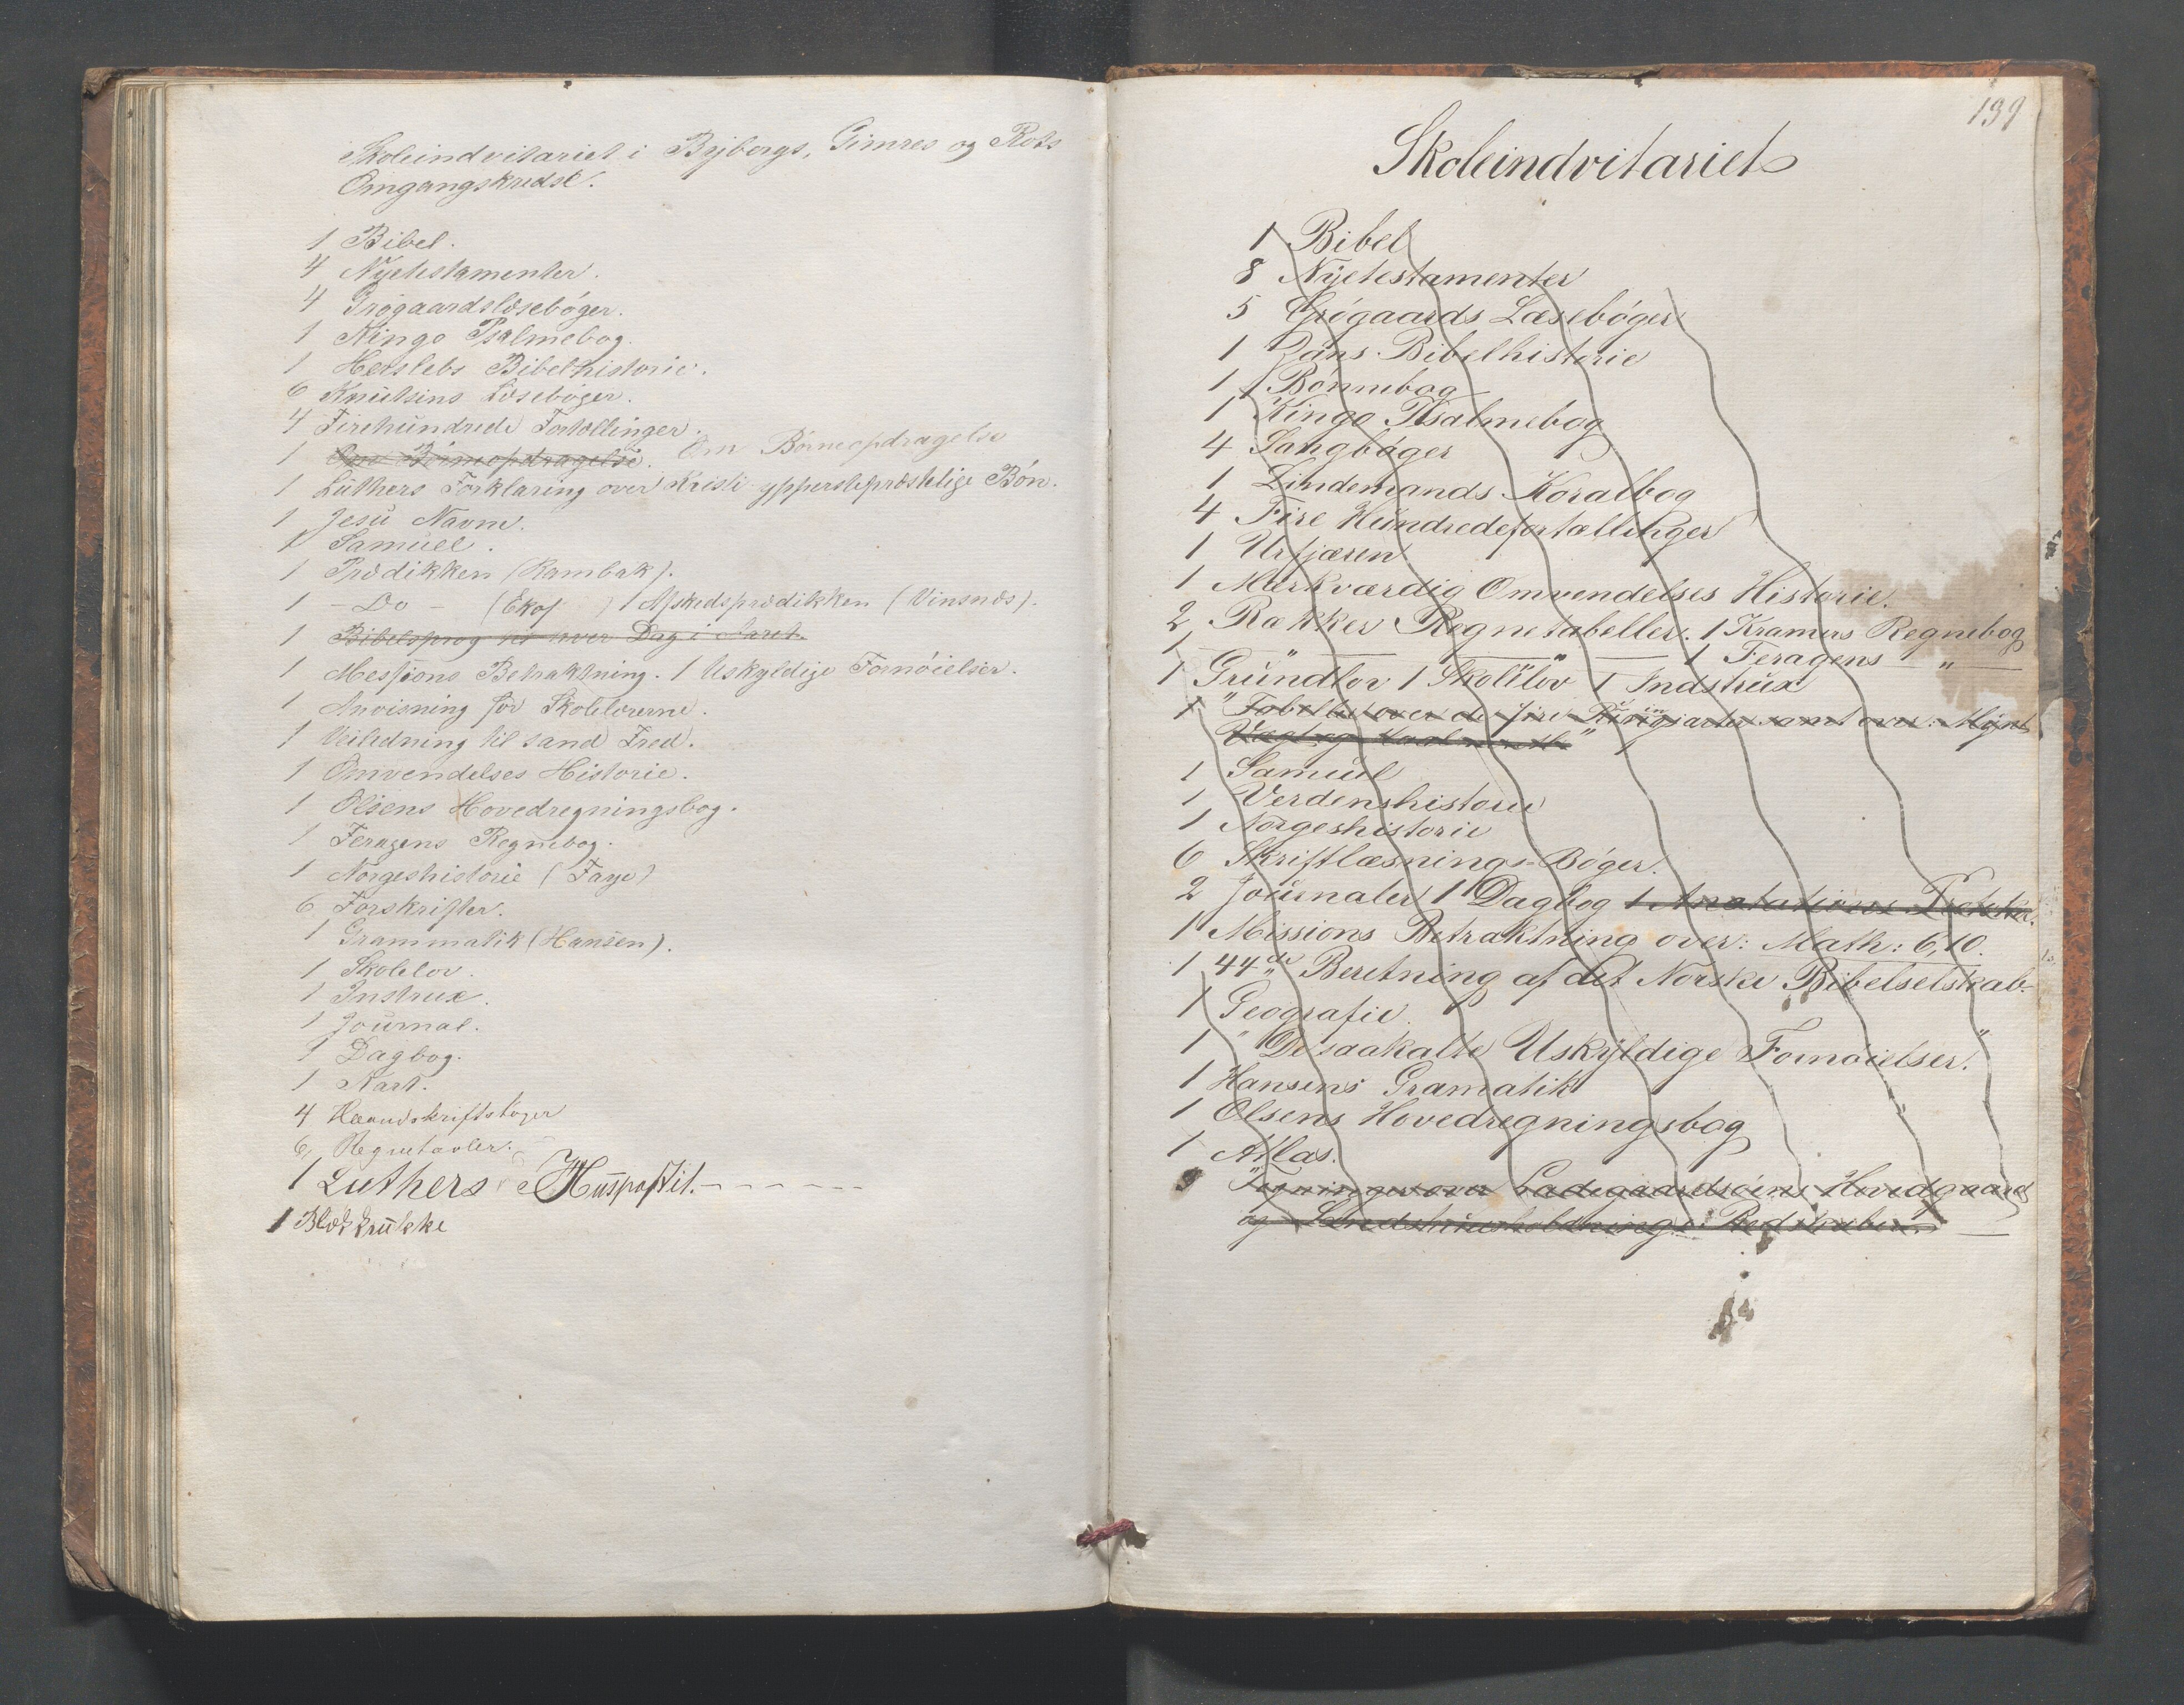 Skoleindvitariet i Byjbergs, Gimres og Rots
Omgangskredse.
1 Bibel.
4 Nyetestamenter.
4 Grøgaardslæsebøger.
1 Kingo Psalmebog.
1 Herslebs Bibelhistorie.
6 Knutsens Læsebøger.
4 Firehundrede Fortællinger.
1 Om Børneopdragelse. Om Børneopdragelse
1 Luthers Forklaring over Kristi yppersteprestelige Bøn.
1 Jesu Navne.
1 Samuel.
1 Prædikken (Rambak).
1 - Do - (Ekof ) 1 Afskedsprædikken (Vinsnæs).
1 Bibelsprog på hver Dag i Aaret.
1 Messions Betraktning. 1 Uskyldige Fornøielser.
1 Anvisning for Skolelærerne.
1 Veiledning til sand Fred.
1 Omvendelses Historie.
1 Olsens Hovedregningsbog.
1 Feragens Regnebog.
1 Norgeshistorie (Faye)
6 Forskrifter.
1 Grammatik (Hansen).
1 Skolelov.
1 Instrux.
1 Journal.
1 Dagbog.
1 Kart.
4 Haandskriftsbøger
6, Regnetavler.
1 Luthers Huspostil. - - - - -
1 Blækkrukke
199
Skoleindvitariet
1 Bibel
8 Nyetestamenter
5 Grøgaards Læsebøger
1 Dans Bibelhistorie
1 Bønnebog
1 Kingo Psalmebog
4 Sangbøger
1 Lindemands Koralbog
4 Fire Hundredefortællinger
1 Urfjæren
1 Mærkværdig Omvendelses Historie.
2 Rækker Regnetabeller. 1 Kramers Regnebog
1 — " — — " — 1 Feragens — " —
1 Grundlov 1 Skolelov 1 Indstrux
1 "Tabeller over de fire Regningsarter samt over: Mynt
Vægt og Maal
1 Samuel
1 Verdenshistorie
1 Norgeshistorie
6 Skriftlæsnings-Bøger.
2 Journaler 1 Dagbog 1 Anotations
1 Missions Betraktning over: Math: 6,10.
1 44de Beretning af det Norske Bibelselskab.
1 Geografie.
1 "De saakalte Uskyldige Fornøielser."
1 Hansens Gramatik
1 Olsens Hovedregningsbog
1 Atlas.
9 "Tegninger over Ladegaardsøens Hovedgaard
og Landshusholdnings Redskaber. —